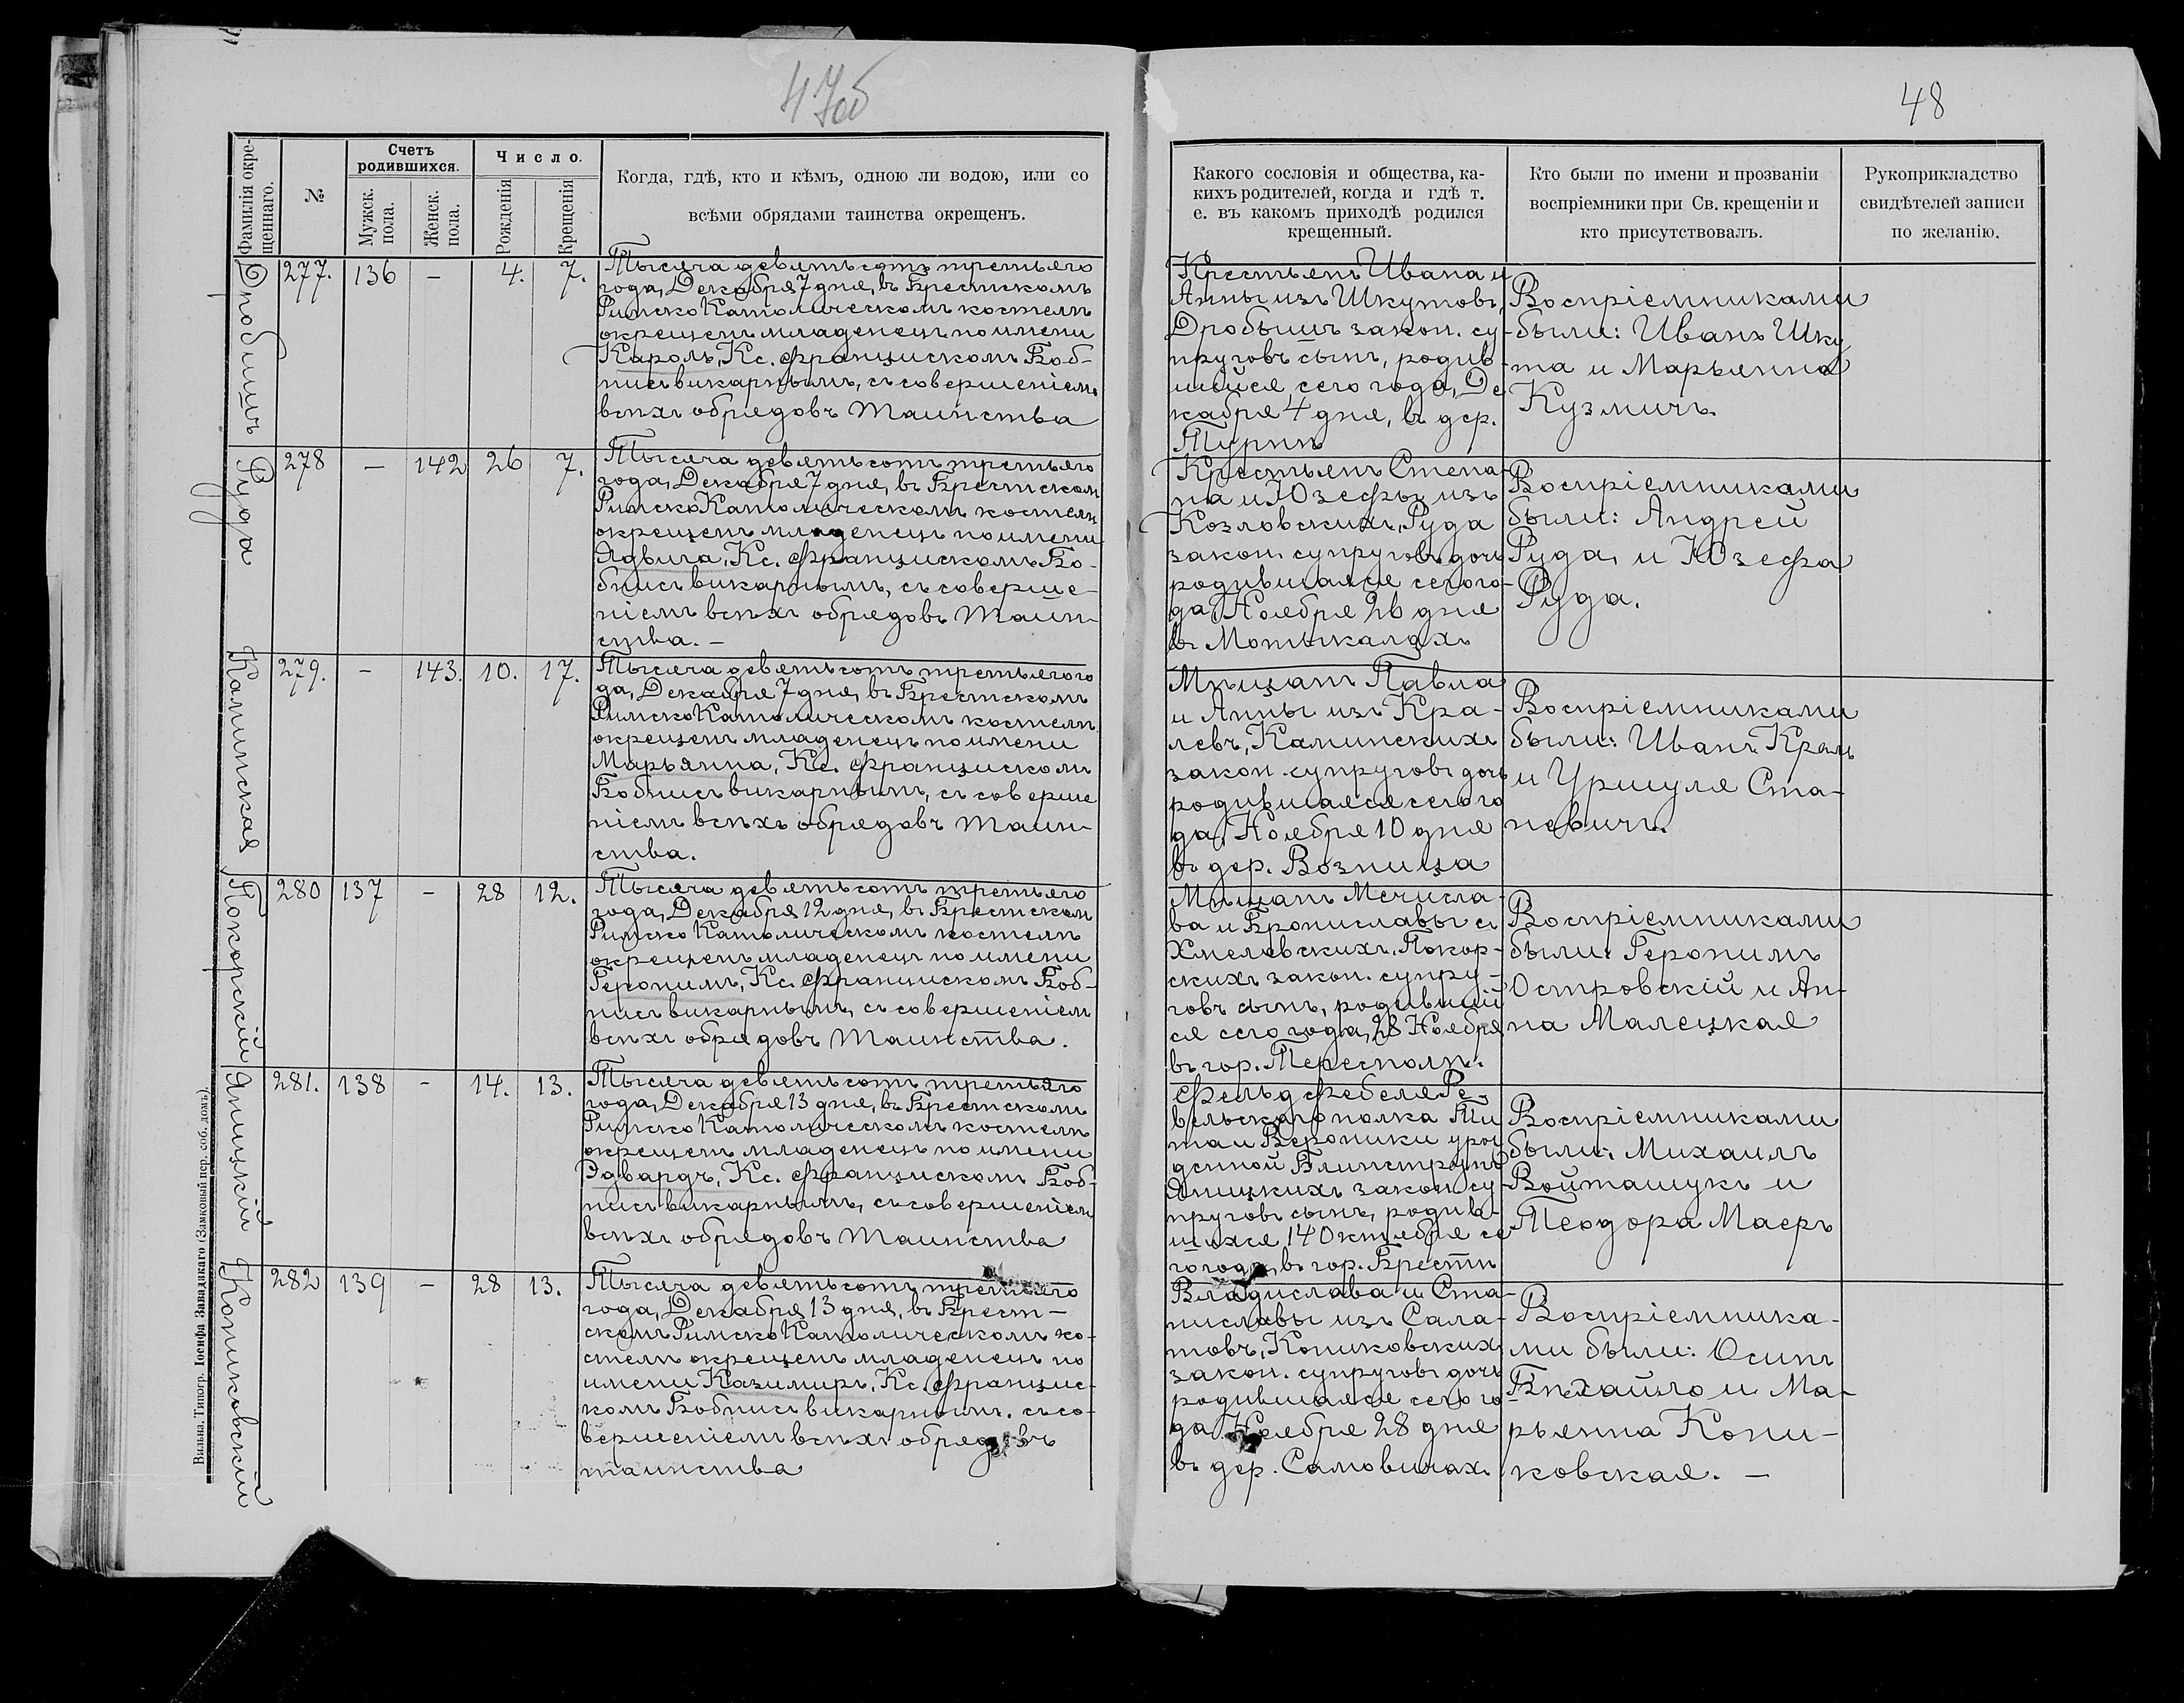 47об
48
Фамилія окре-
щеннаго.
№
Счетъ
родившихся.
Мужск.
пола.
Женск.
пола.
Число.
Рожденія
Крещенія
Когда, гдѣ, кто и кѣмъ, одною ли водою, или со
всѣми обрядами таинства окрещенъ.
Какого сословія и общества, ка-
кихъ родителей, когда и гдѣ т.
е. въ какомъ приходѣ родился
крещенный.
Кто были по имени и прозванію
воспріемники при Св. крещеніи и
кто присутствовалъ.
Рукоприкладство
свидѣтелей записи
по желанію.
Дробишъ
277. 136 – 4. 7.
Тысяча девятьсотъ третьяго
года, Декабря 7 дня, въ Брестскомъ
Римско Католическомъ костелѣ
окрещенъ младенецъ по имени
Кароль, Кс. Францискомъ Боб-
нисъ викарнымъ, съ совершеніемъ
всѣхъ обрядовъ Таинства
Крестьянъ Ивана и
Анны изъ Шкутовъ,
Дробышъ закон. су-
пруговъ сынъ, родив-
шійся сего года, Де
кабря 4 дня, въ дер.
Турнѣ
Воспріемниками
были: Иванъ Шку
та и Марьянна
Кузмичъ
Руда
278 – 142 26 7.
Тысяча девятьсотъ третьяго
года, Декабря 7 дня, въ Брестском
Римско Католическомъ костелѣ
окрещенъ младенецъ по имени
Ядвига, Кс. Францискомъ Бо-
бнисъ викарнымъ, съ соверше-
ніемъ всѣхъ обрядовъ Таин-
ства. –
Крестьянъ Степа-
на и Юзефы изъ
Козловскихъ, Руда
закон. супруговъ дочь
родившаяся сего го-
да, Ноября 26 дня
въ Мотыкалахъ
Воспріемниками
были: Андрей
Руда, и Юзефа
Руда.
Каминская
279. – 143. 10. 17.
Тысяча девятьсотъ третьяго го
да, Декабря 7 дня, въ Брестскомъ
Римско Католическомъ костелѣ
окрещенъ младенецъ по имени
Марьянна, Кс. Францискомъ
Бобнисъ викарнымъ, съ соверше
ніемъ всѣхъ обрядовъ таин-
ства.
Мѣщанъ Павла
и Анны изъ Кра-
левъ, Каминскихъ
закон. супруговъ дочь
родившаяся сего го
да, Ноября 10 дня
въ дер. Возница
Воспріемниками
были: Иванъ Краль
и Уршуля Ста-
невичъ.
Покорскій
280 137 – 28 12.
Тысяча девятьсотъ третьяго
года, Декабря 12 дня, въ Брестском
Римско Католическомъ костелѣ
окрещенъ младенецъ по имени
Геронимъ, Кс. Францискомъ Боб-
нисъ викарнымъ, съ совершеніем
всѣхъ обрядовъ Таинства.
Мѣщанъ Мечисла-
ва и Брониславы съ
Хмелевскихъ, Покор-
скихъ закон. супру-
говъ сынъ, родившій
ся сего года, 28 Ноября
въ гор. Тересполѣ.
Воспріемниками
были: Геронимъ
Островскій и Ан-
на Малецкая
Яницкій
281. 138 – 14. 13.
Тысяча девятьсотъ третьяго
года, Декабря 13 дня, въ Брестскомъ
Римско Католическомъ костелѣ
окрещенъ младенецъ по имени
Эдвардъ, Кс. Францискомъ Боб-
нисъ викарнымъ, съ совершеніем
всѣхъ обрядовъ Таинства
Фельдфебеля Ре-
вельского полка Ти
та и Вероники урож
денной
Яницкихъ закон. су-
пруговъ сынъ, родив-
шихся 14 Октября се
го года, въ гор. Брестѣ
Воспріемниками
были: Михаилъ
Войташукъ и
Теодора Маеръ
Кониковскій
282 139 – 28 13.
Тысяча девятьсотъ третьяго
года, Декабря 13 дня, въ Брест-
скомъ Римско Католическомъ ко-
стелѣ окрещенъ младенецъ по
имени Казимиръ, Кс. Францис-
комъ Бобнисъ викарнымъ. съ со-
вершеніемъ всѣхъ обрядовъ
таинства
Владислава и Ста-
ниславы изъ Сала-
товъ, Кониковскихъ
закон. супруговъ дочь
родившаяся сего го-
да, Ноября 28 дня
въ дер. Самовичах.
Воспріемника-
ми были: Осипъ
Бѣхайло и Ма-
рьянна Кони-
ковская. –
Вильна. Типогр. Іосифа Завадзкаго (Замковый пер. соб. домъ).